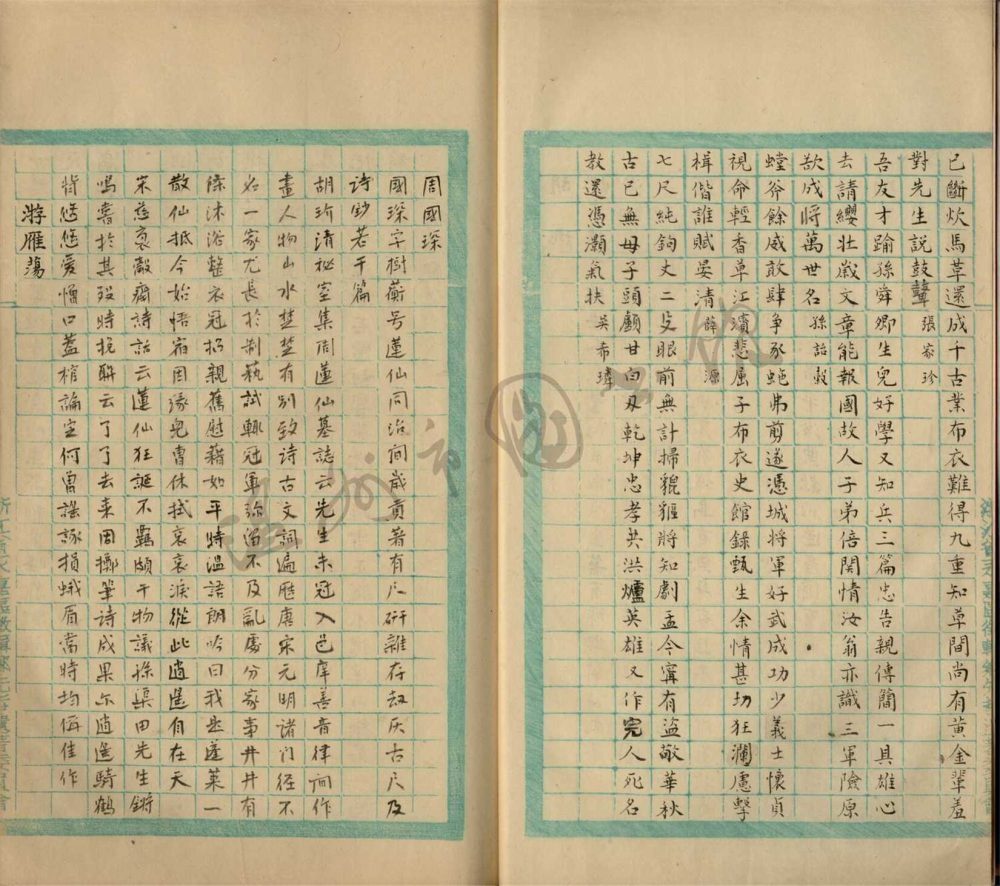 已斷炊馬草還成千古業布衣難得九重知草間尚有黃金羣羞
對先生說鼓鼙 張家珍
吾友才踰孫舜卿生兒好學又知兵三篇忠告親傳簡一具雄心
去請纓壯歲文章能報國故人子弟倍關情汝翁亦識三軍險原
欲成將萬世名 孫詒穀
螳斧餘威敢肆爭豕蛇弗剪遂憑城將軍好武成功少義士懷貞
視命輕香草江濱悲屈子布衣史館錄甄生余情甚切狂瀾慮擊
楫偕誰賦晏清 薛源
七尺純鉤丈二殳眼前無計掃貔貙將知劇孟今寧有盜敬華秋
古已無母子頭顱甘白刃乾坤忠孝共洪爐英雄又作完人死名
教還憑灝氣扶 吳希璘
周國琛
國琛字樹蘅号蓮仙同治間歲貢著有尺研雜存劫灰古尺及
诗鈔若干篇
胡珩清秘室集周蓮仙墓誌云先生未冠入邑庠善音律间作
畫人物山水楚楚有别致诗古文詞遍歷唐宋元明诸门径不
名一家尤長於制藝試輒冠軍弥留不及亂處分家事井井有
條沐浴整衣冠招親舊慰藉如平時温語朗吟曰我生蓬萊一
散仙抵今始悟宿因缘兒曹休拭哀哀淚從此逍遥自在天
宋慈裒敝帚齋詩話云蓮仙狂誕不羈頗干物議孫渠田先生鏘
鸣書於其殁時挽聯云了了去来因擲筆诗成果尔逍遥騎鶴
背悠悠爱憎口蓋棺論定何曾謠諑損蛾眉當時均偁佳作
游雁蕩